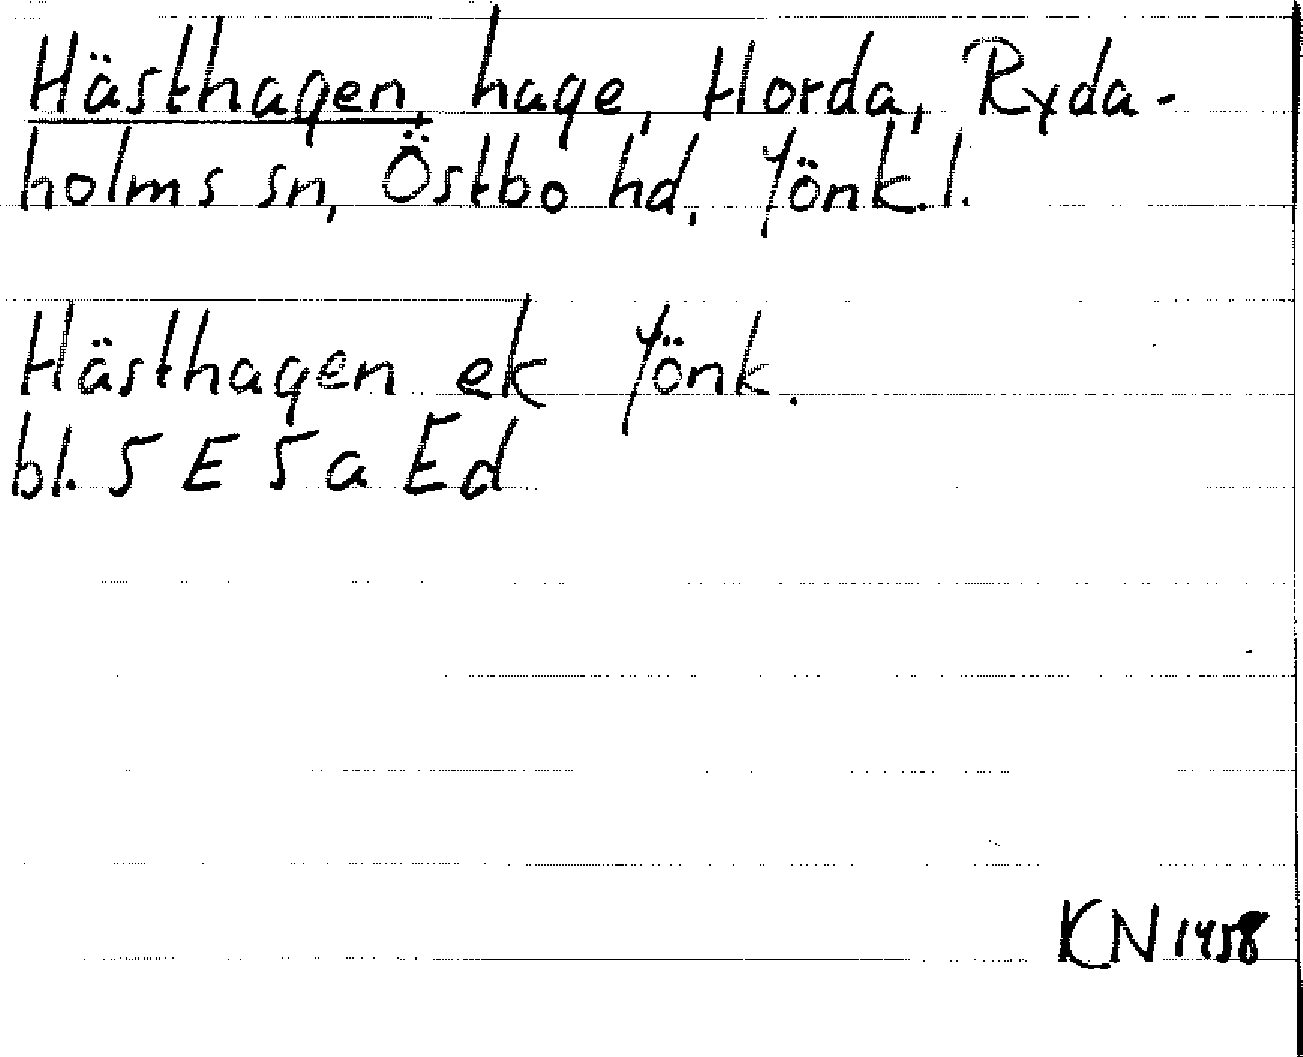 Hästhagen, hage, Horda, Ryda-
holms sn, Östbo hd, Jönk.l.
Hästhagen ek Jönk.
bl. 5 E 5 a Ed
KN 1458